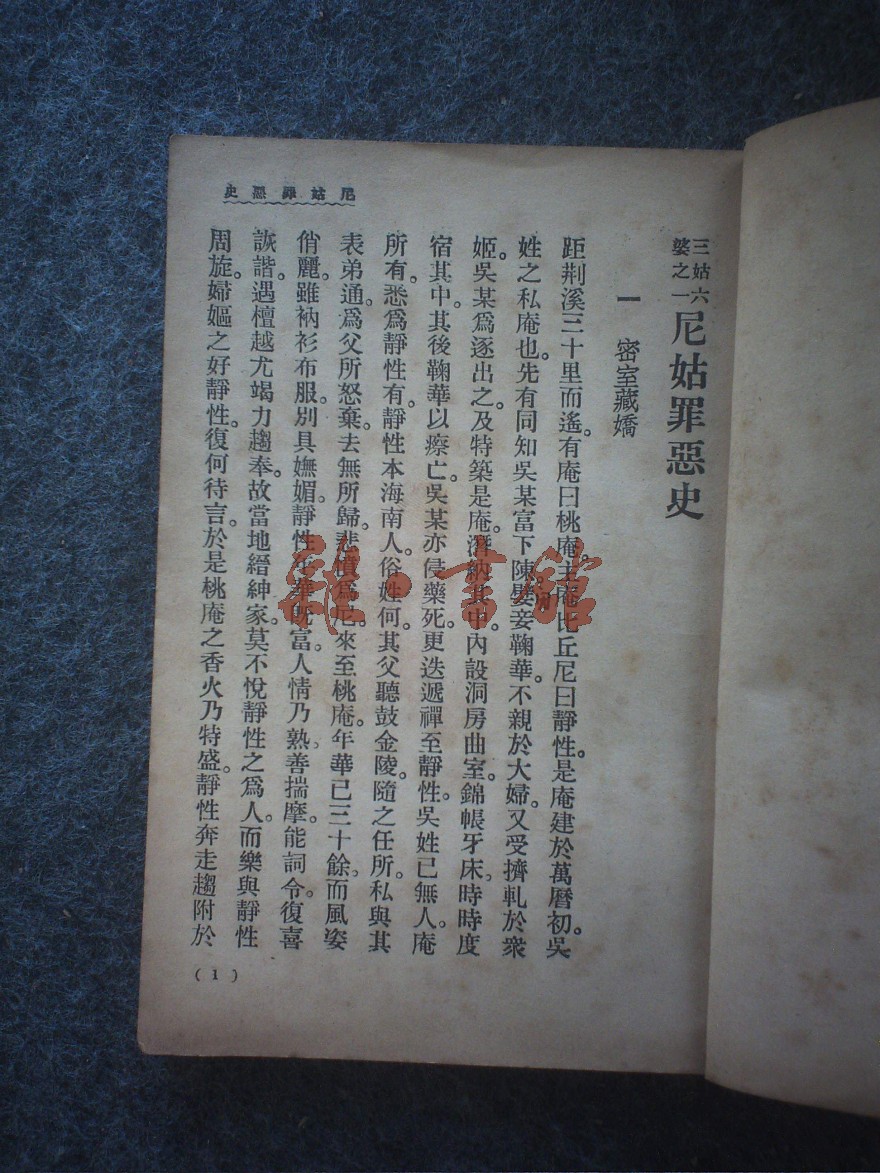 尼姑罪惡史
三姑六
婆之一
尼姑罪惡史
一 密室藏嬌
距荆溪三十里而遙。有庵曰桃庵。主庵比丘尼曰靜性。是庵建於萬曆初。吳
姓之私庵也。先有同知吳某富下陳。嬖妾鞠華。不親於大婦。又受擠軋於衆
姬。吳某爲逐出之。及特築是庵。潛納其中。內設洞房曲室。錦帳牙床。時時度
宿其中。其後鞠華以瘵亡。吳某亦侵藥死。更迭遞禪至靜性。吳姓已無人。庵
所有。悉爲靜性有。靜性本海南人。俗姓何。其父聽鼓金陵。隨之任所。私與其
表弟通。爲父所怒棄。去無所歸。悲憤爲尼。來至桃庵。年華已三十餘。而風姿
俏麗。雖衲衫布服。別具嫵媚。靜性年華旣富。人情乃熟。善揣摩。能詞令。復喜
詼諧。遇檀越尤竭力趨奉。故當地縉紳家。莫不悅靜性之爲人。而樂與靜性
周旋。婦嫗之好靜性。復何待言。於是桃庵之香火乃特盛。靜性奔走趨附於
(1)
雜·書館